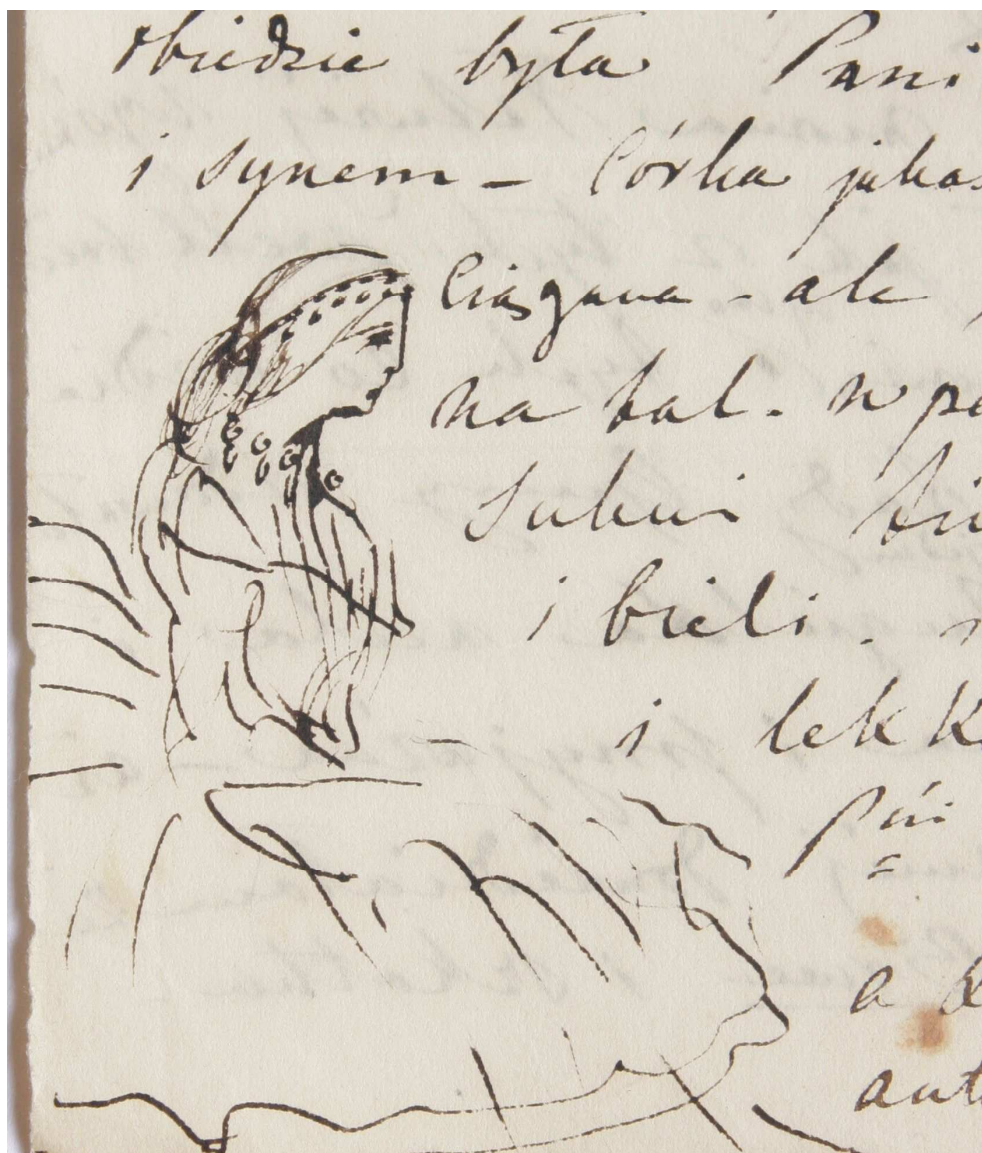 obiedzie była Pani
i synem – Córka jakaś
Ciągana – ale
na bal. w po
Sukni
i bieli.
i lekk
a
aut